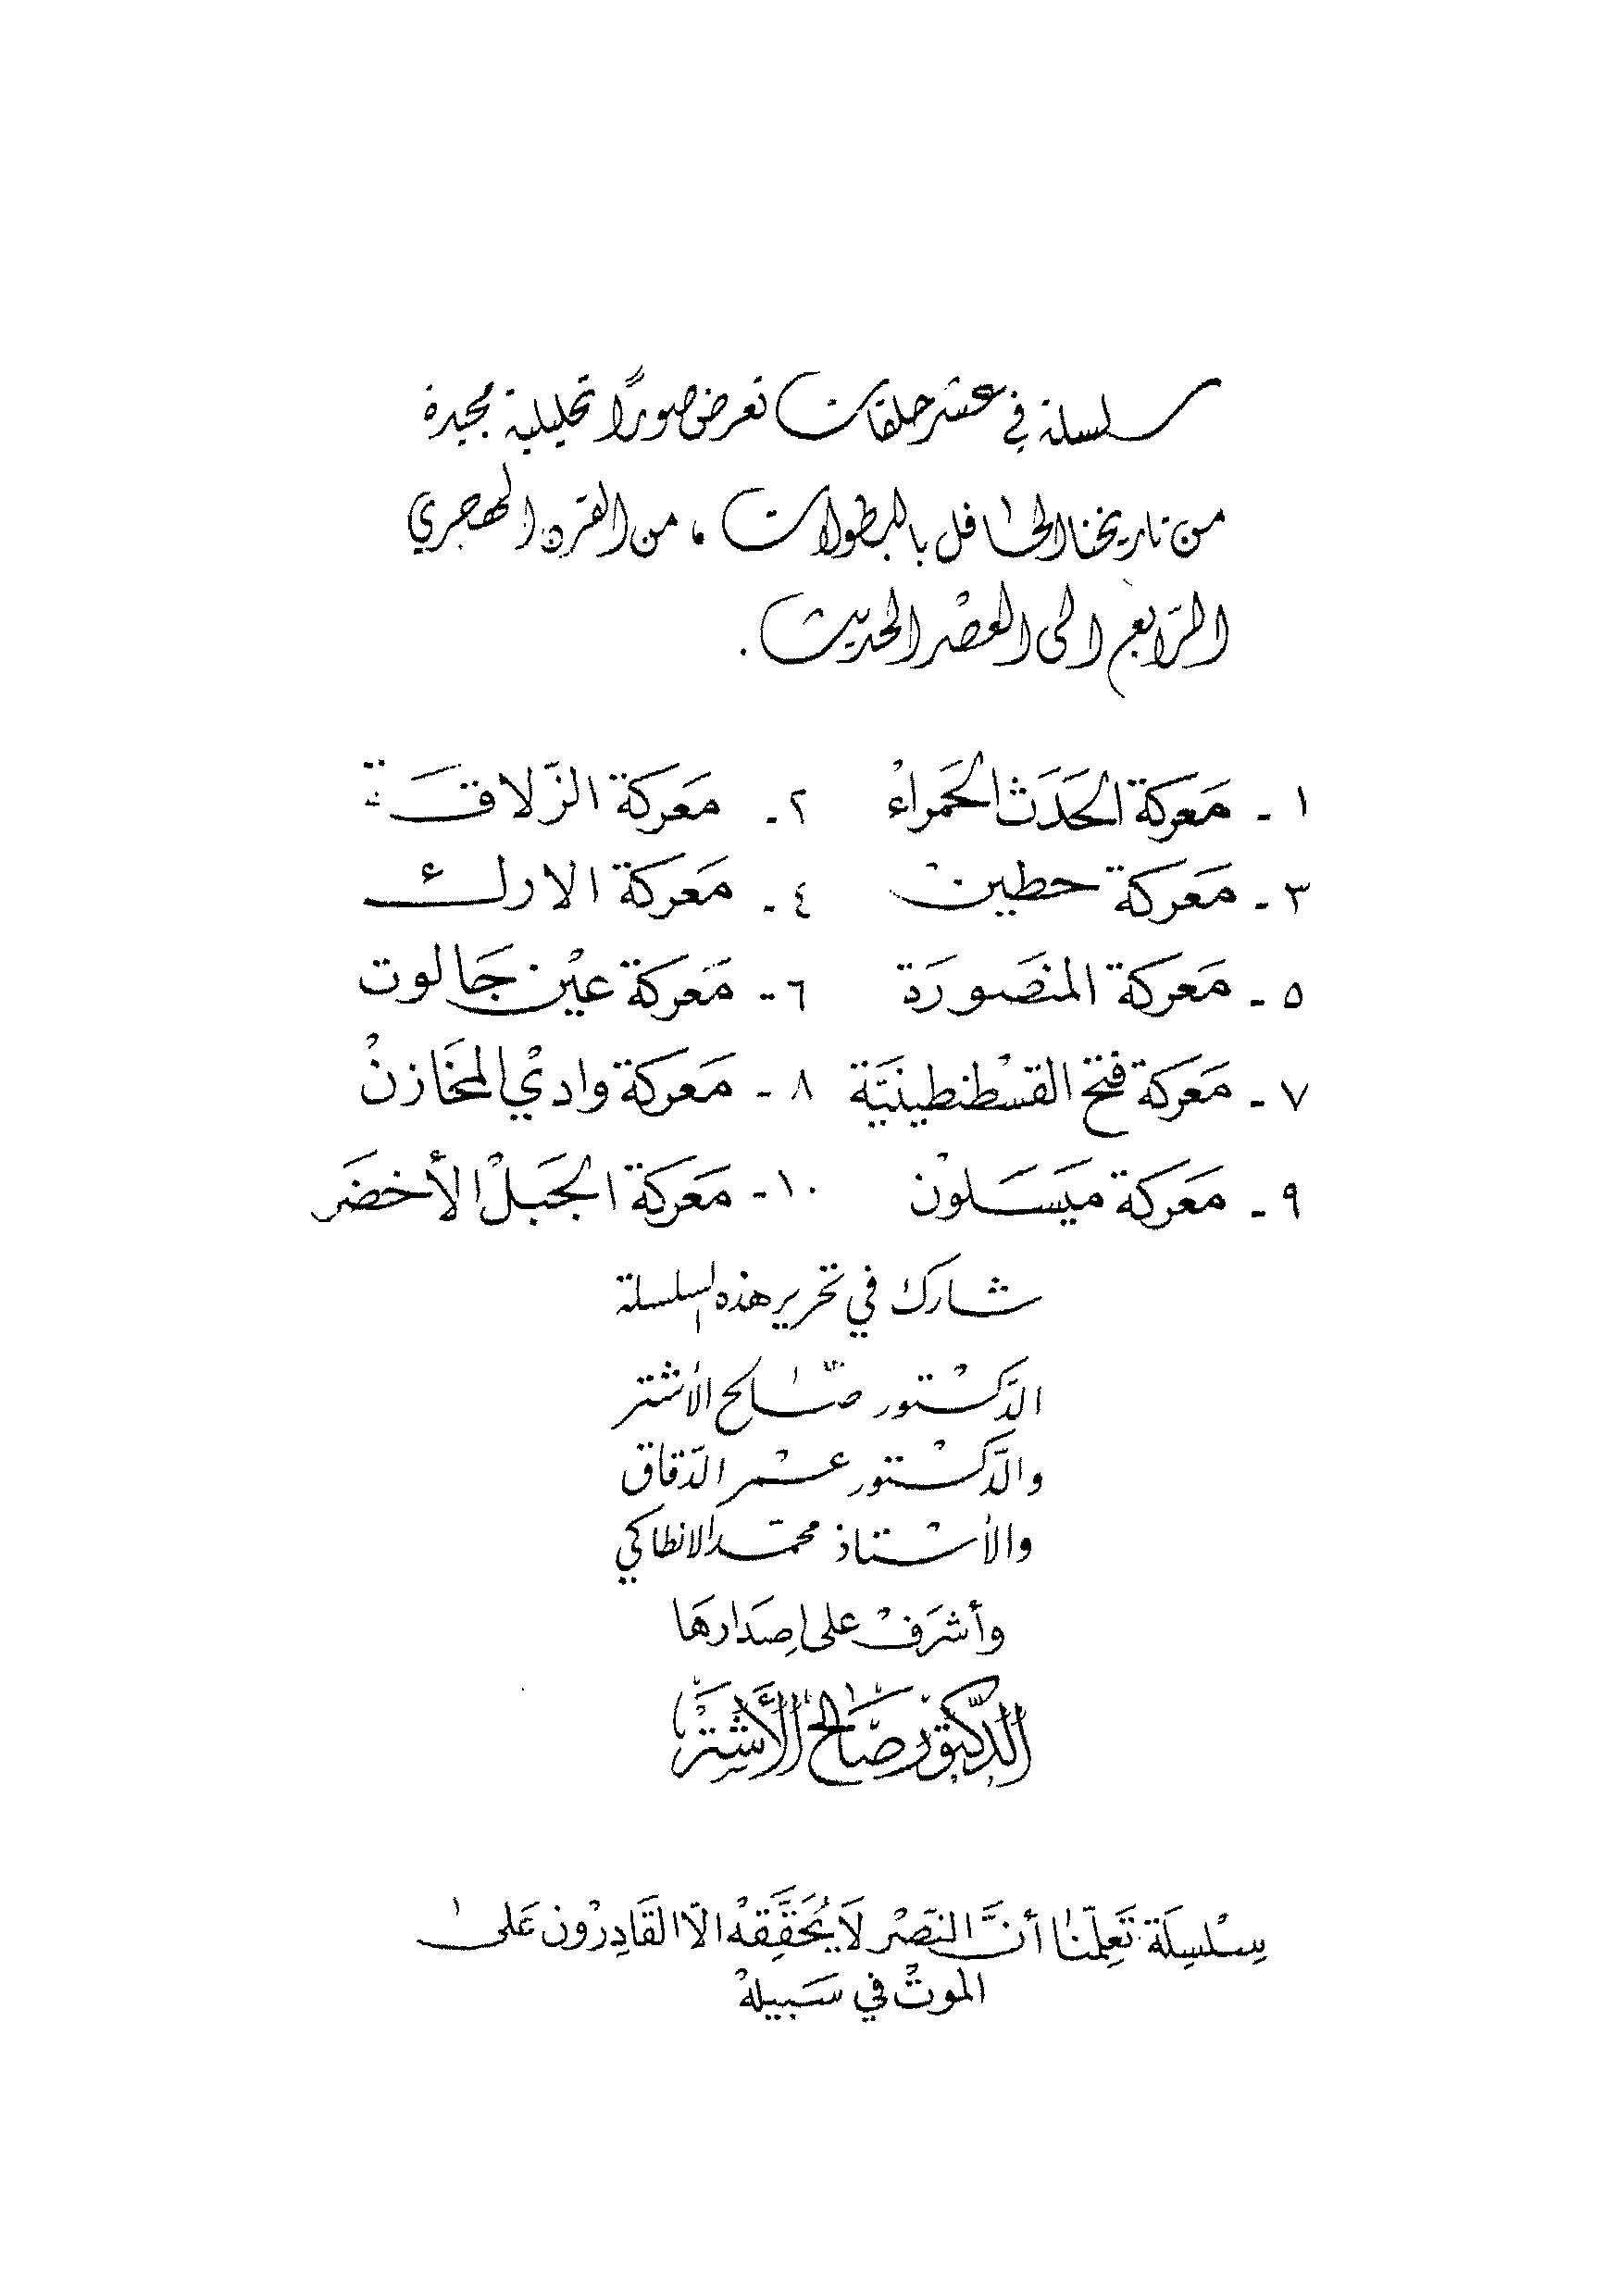 سلسلة في عشر حلقات تعرض صوراً تحليلية مجيدة
من تاريخنا الحافل بالبطولات ، من القرن الهجري
الرّابع الى العصْر الحديث .
١ - مَعركة الحَدَث الحَمراءْ ٢ - مَعركة الزّلاقَة
٣ - مَعركة حطينْ ٤ - مَعركة الارك
٥ - مَعركة المنصَورَة ٦ - مَعركة عيْن جَالوت
٧ - مَعركة فتْح القسْطنطينيَّة ٨ - مَعركة واديْ المخَازنْ
٩ - مَعركة ميَسَلوْن ١٠ - مَعركة الجَبلْ الأخضَر
شارك في تحرير هذه السلسلة
الدَّكْتور صّالح الأشتر
والدَّكْتور عمْر الدّقاق
والأسْتاذ محمّد الانطاكي
وأشرَفْ على إصدَارهَا
الدّكتوْر صَالح الأَشْتَرْ
سِلْسِلَة تَعلِّمنَا أنَّ النصَرْ لَا يُحَقَّقِهْ الّا القَادِرْون عَلى
الموتْ في سَبيلهْ